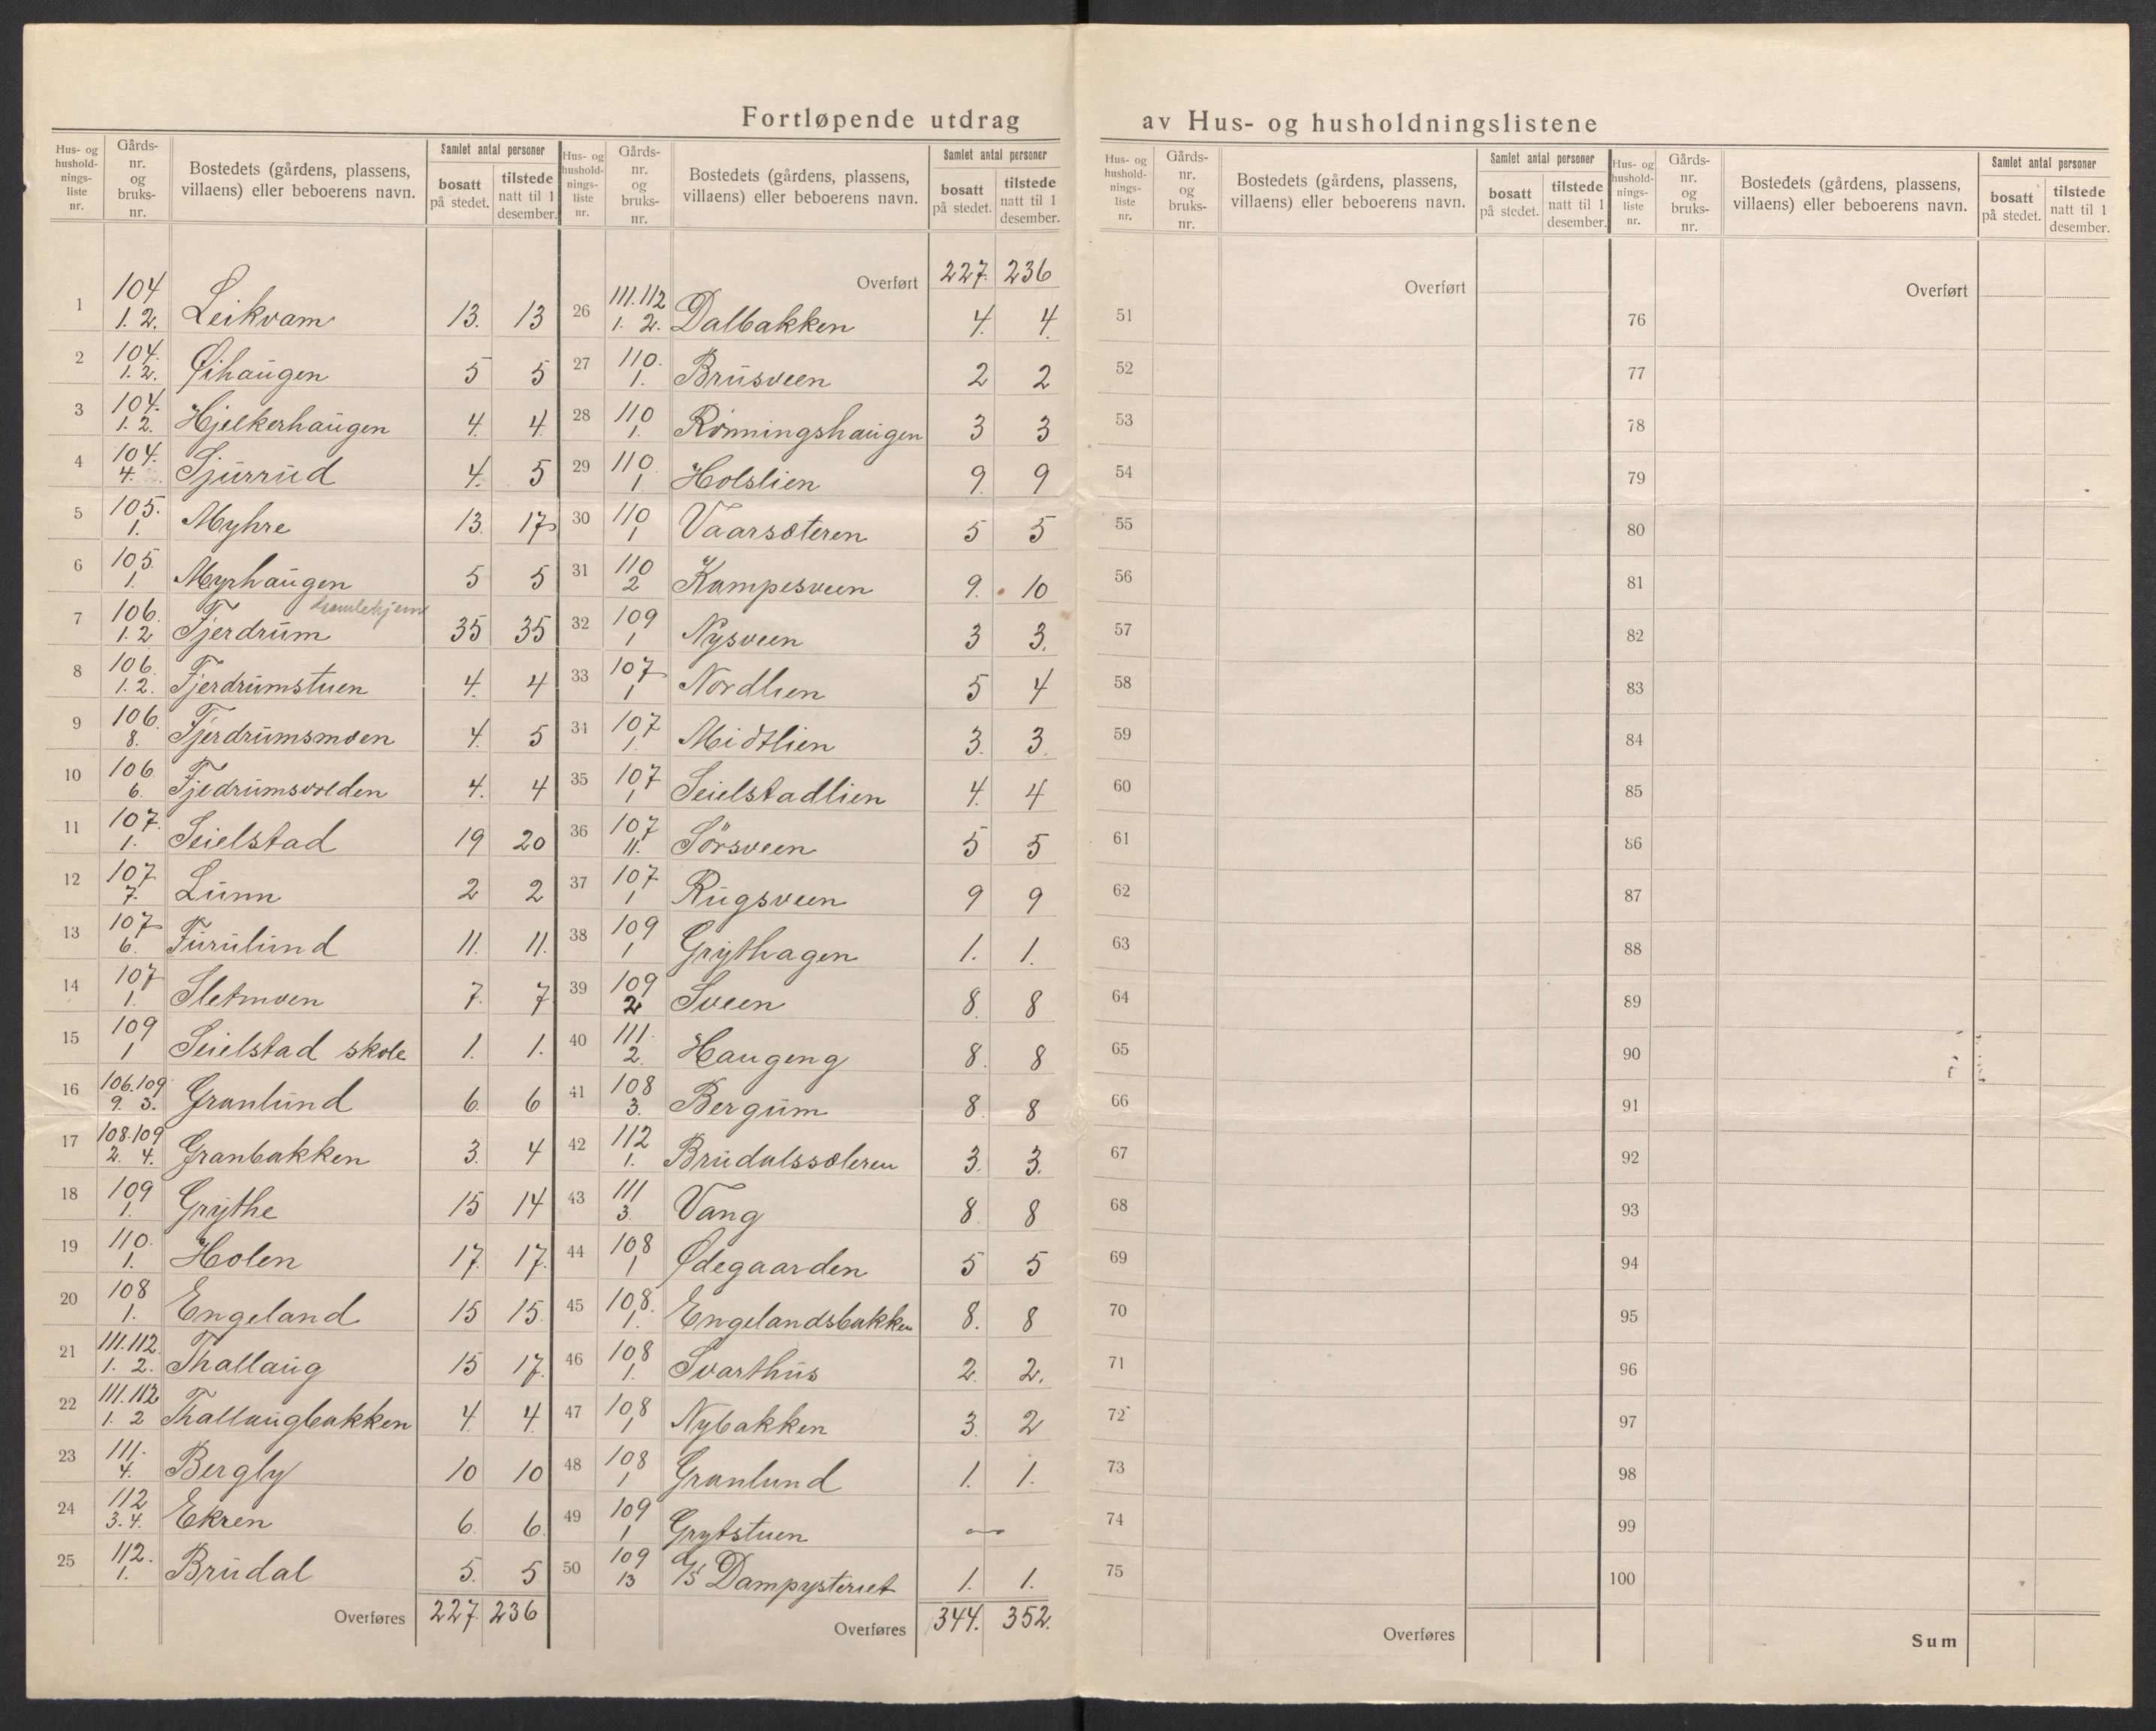 Fortløpende utdrag av Hus- og husholdningslistene
Hus- og hushold-nings-liste nr. | Gårds-nr. og bruks-nr. | Bostedets (gårdens, plassens, villaens) eller beboerens navn. | Samlet antal personer | bosatt på stedet. | tilstede natt til 1 desember.
1 | 104 1. 2. | Leikvam | 13. | 13
2 | 104. 1. 2. | Øihaugen | 5 | 5
3 | 104. 1. 2. | Hjelkerhaugen | 4. | 4.
4 | 104. 4. | Sjurrud | 4. | 5
5 | 105. 1. | Myhre | 13. | 17
6 | 105. 1. | Myrhaugen | 5 | 5
7 | 106. 1. 2 | Fjerdrum gamlehjem | 35 | 35
8 | 106. 1. 2. | Fjerdrumstuen | 4. | 4
9 | 106. 8. | Fjerdrumsmoen | 4. | 5
10 | 106. 6. | Fjedrumsvolden | 4. | 4
11 | 107. 1. | Seielstad | 19 | 20
12 | 107 7. | Lunn | 2 | 2
13 | 107 6. | Furulund | 11. | 11.
14 | 107 1. | Sletmoen | 7. | 7
15 | 109 1 | Seielstad skole | 1. | 1.
16 | 106.109 9. 3. | Granlund | 6. | 6
17 | 108.109 2. 4. | Granbakken | 3. | 4
18 | 109 1. | Grythe | 15 | 14
19 | 110. 1. | Holen | 17. | 17.
20 | 108 1. | Engeland | 15 | 15
21 | 111.112. 1. 2. | Thallaug | 15 | 17.
22 | 111.112 1. 2 | Thallaugbakken | 4. | 4.
23 | 111. 4. | Bergly | 10 | 10
24 | 112 3. 4. | Ekren | 6. | 6.
25 | 112. 1. | Brudal | 5. | 5
Overføres | 227. | 236
Hus- og hushold-nings-liste nr. | Gårds-nr. og bruks-nr. | Bostedets (gårdens, plassens, villaens) eller beboerens navn. | Samlet antal personer | bosatt på stedet. | tilstede natt til 1 desember.
Overført | 227. | 236
26 | 111.112 1. 2. | Dalbakken | 4. | 4.
27 | 110. 1. | Brusveen | 2 | 2
28 | 110 1. | Rønningshaugen | 3 | 3
29 | 110. 1 | Holslien | 9. | 9
30 | 110 1 | Vaarsæteren | 5 | 5
31 | 110 2 | Kampesveen | 9. | 10
32 | 109 1 | Nysveen | 3 | 3.
33 | 107 1 | Nordlien | 5 | 4
34 | 107 1. | Midtlien | 3. | 3.
35 | 107 1 | Seielstadlien | 4. | 4
36 | 107 11. | Sörsveen | 5 | 5
37 | 107 1 | Rugsveen | 9 | 9
38 | 109 1 | Grythagen | 1. | 1.
39 | 109 2 | Sveen | 8. | 8
40 | 111. 2. | Haugeng | 8. | 8
41 | 108 3. | Bergum | 8. | 8
42 | 112 1. | Brudalssæteren | 3. | 3.
43 | 111 3. | Vang | 8. | 8
44 | 108 1 | Ødegaarden | 5 | 5
45 | 108. 1. | Engelandsbakken | 8. | 8
46 | 108 1. | Svarthus | 2. | 2.
47 | 108 1 | Nybakken | 3. | 2
48 | 108 1 | Granlund | 1. | 1.
49 | 109 1 | Grytstuen | —
50 | 109 13 | A/S Dampysteriet | 1. | 1.
Overføres | 344. | 352.
Hus- og hushold-nings-liste nr. | Gårds-nr. og bruks-nr. | Bostedets (gårdens, plassens, villaens) eller beboerens navn. | Samlet antal personer | bosatt på stedet. | tilstede natt til 1 desember.
Overført
51
52
53
54
55
56
57
58
59
60
61
62
63
64
65
66
67
68
69
70
71
72
73
74
75
Overføres
Hus- og hushold-nings-liste nr. | Gårds-nr. og bruks-nr. | Bostedets (gårdens, plassens, villaens) eller beboerens navn. | Samlet antal personer | bosatt på stedet. | tilstede natt til 1 desember.
Overført
76
77
78
79
80
81
82
83
84
85
86
87
88
89
90
91
92
93
94
95
96
97
98
99
100
Sum